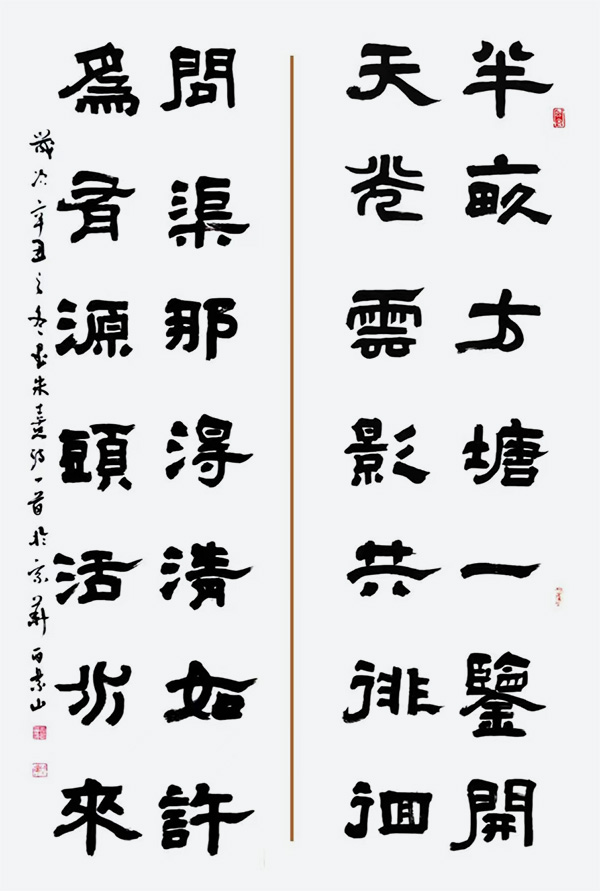 半畝方塘一鑒開
天光雲影共徘徊
問渠那得清如許
爲有源頭活水來
歲次辛丑之冬書朱熹詩一首於京
山